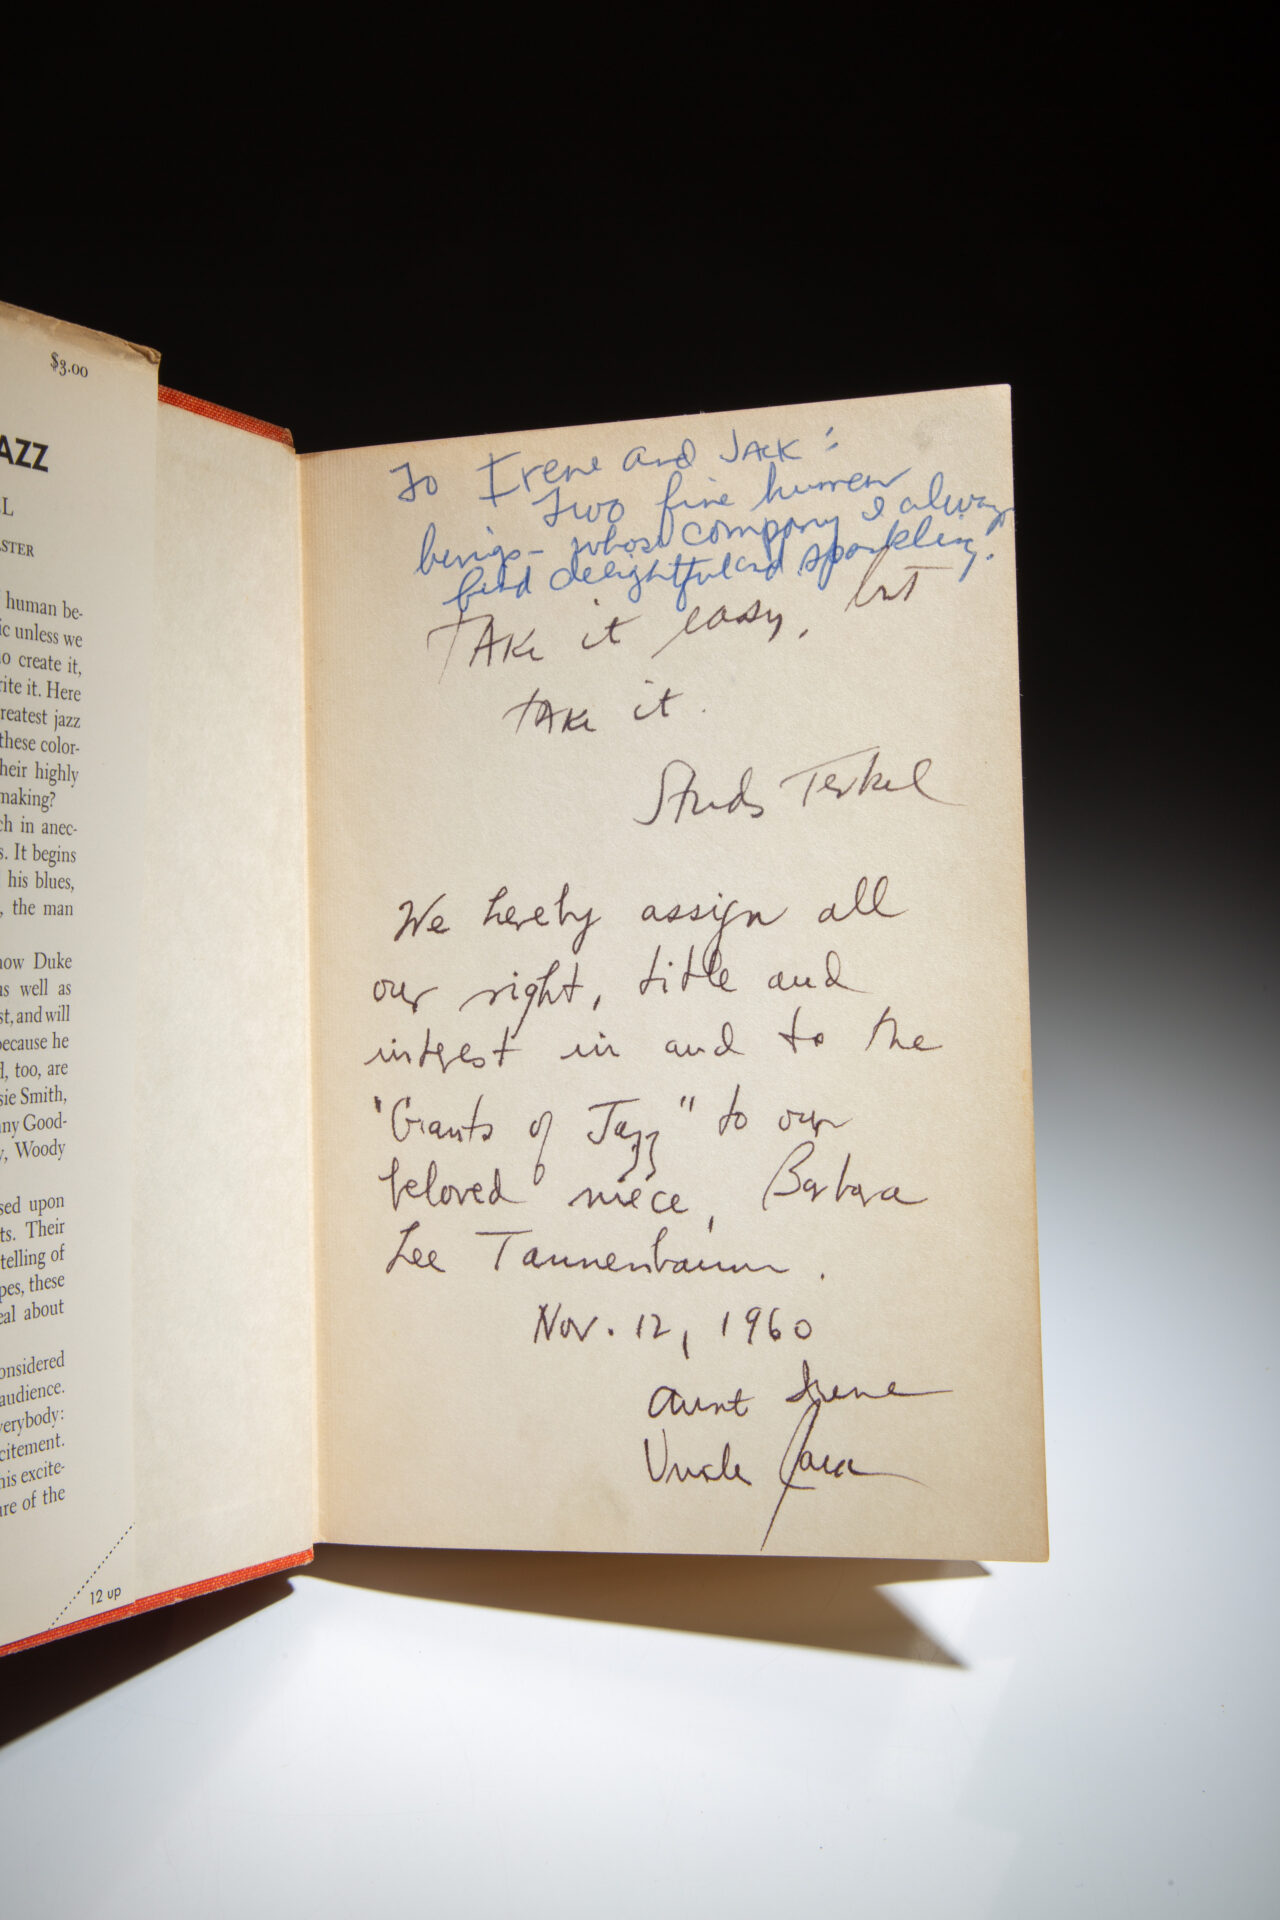 $3.00
AZZ
L
STER
human be-
ic unless we
o create it,
rite it. Here
reatest jazz
these color-
heir highly
making?
ch in anec-
s. It begins
his blues,
, the man
now Duke
as well as
st, and will
because he
d, too, are
sie Smith,
nny Good-
y, Woody
sed upon
ts. Their
telling of
pes, these
eal about
onsidered
audience.
verybody:
citement.
his excite-
ure of the
12 up
To Irene and JACK:
Two fine human
beings - whose company I always
find delightful and sparkling.
TAKe it easy, but
tAKe it.
Studs Terkel
We hereby assign all
our right, title and
interest in and to the
"Giants of Jazz" to our
beloved niece, Barbara
Lee Tannenbaum.
Nov. 12, 1960
Aunt Irene
Uncle Jack